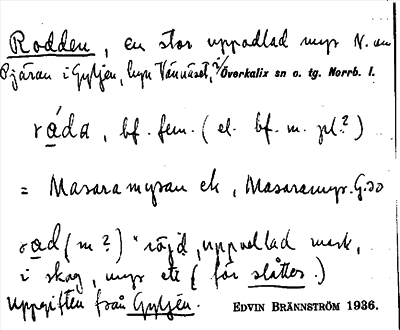 Rodden, en stor uppodlad myr N. om
Pjäran i Gyljen, byn Vännäset, i Överkalix sn o. tg. Norrb. l.
råda, bf. fem. (el. bf. m. pl.?)
= Masaramyran ek, Masaramyr. G:50
råd (m?) "röjd, uppodlad mark,
i skog, myr etc (för slåtter.)
Uppgiften från Gyljén. EDVIN BRÄNNSTRÖM 1936.